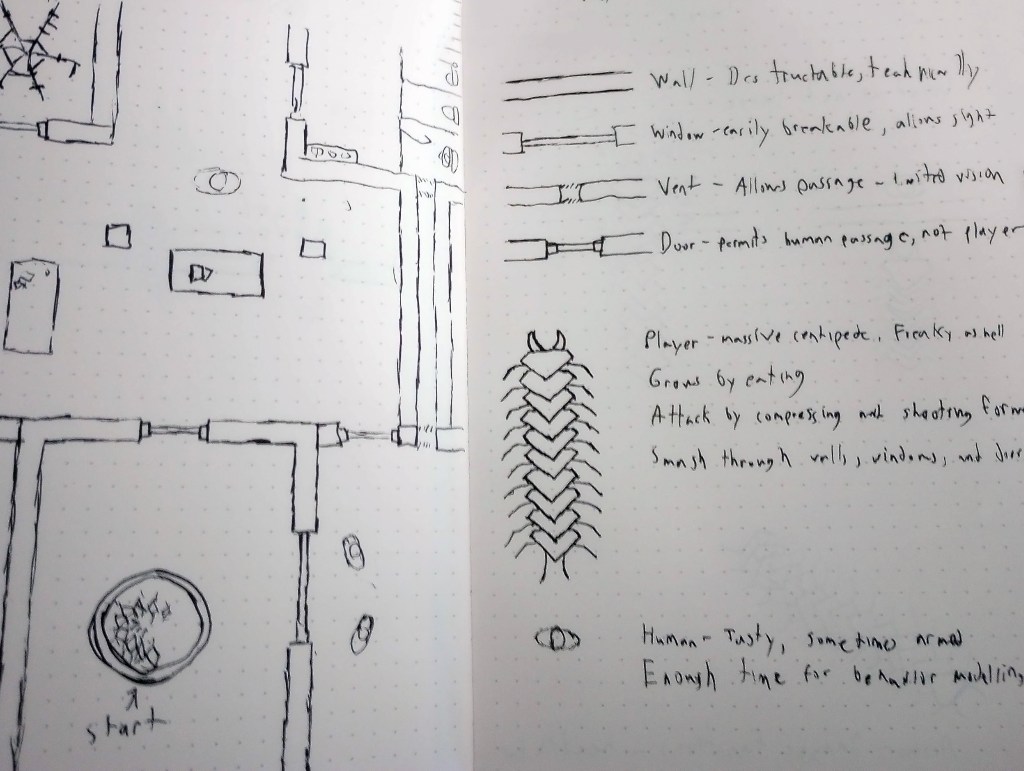 Wall - Destructable, technically
Window - easily breakable, allows sight
Vent - Allows passage - limited vision
Door - permits human passage, not player
Player - massive centipede. Freaky as hell
Grows by eating
Attack by compressing and shooting forwa
Smash through walls, windows, and door
Human - Tasty, sometimes armed
Enough time for behavior modelling
start